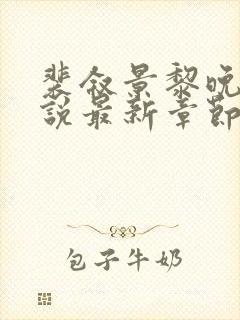 裴叙景黎晚
說最新章節
包子牛奶